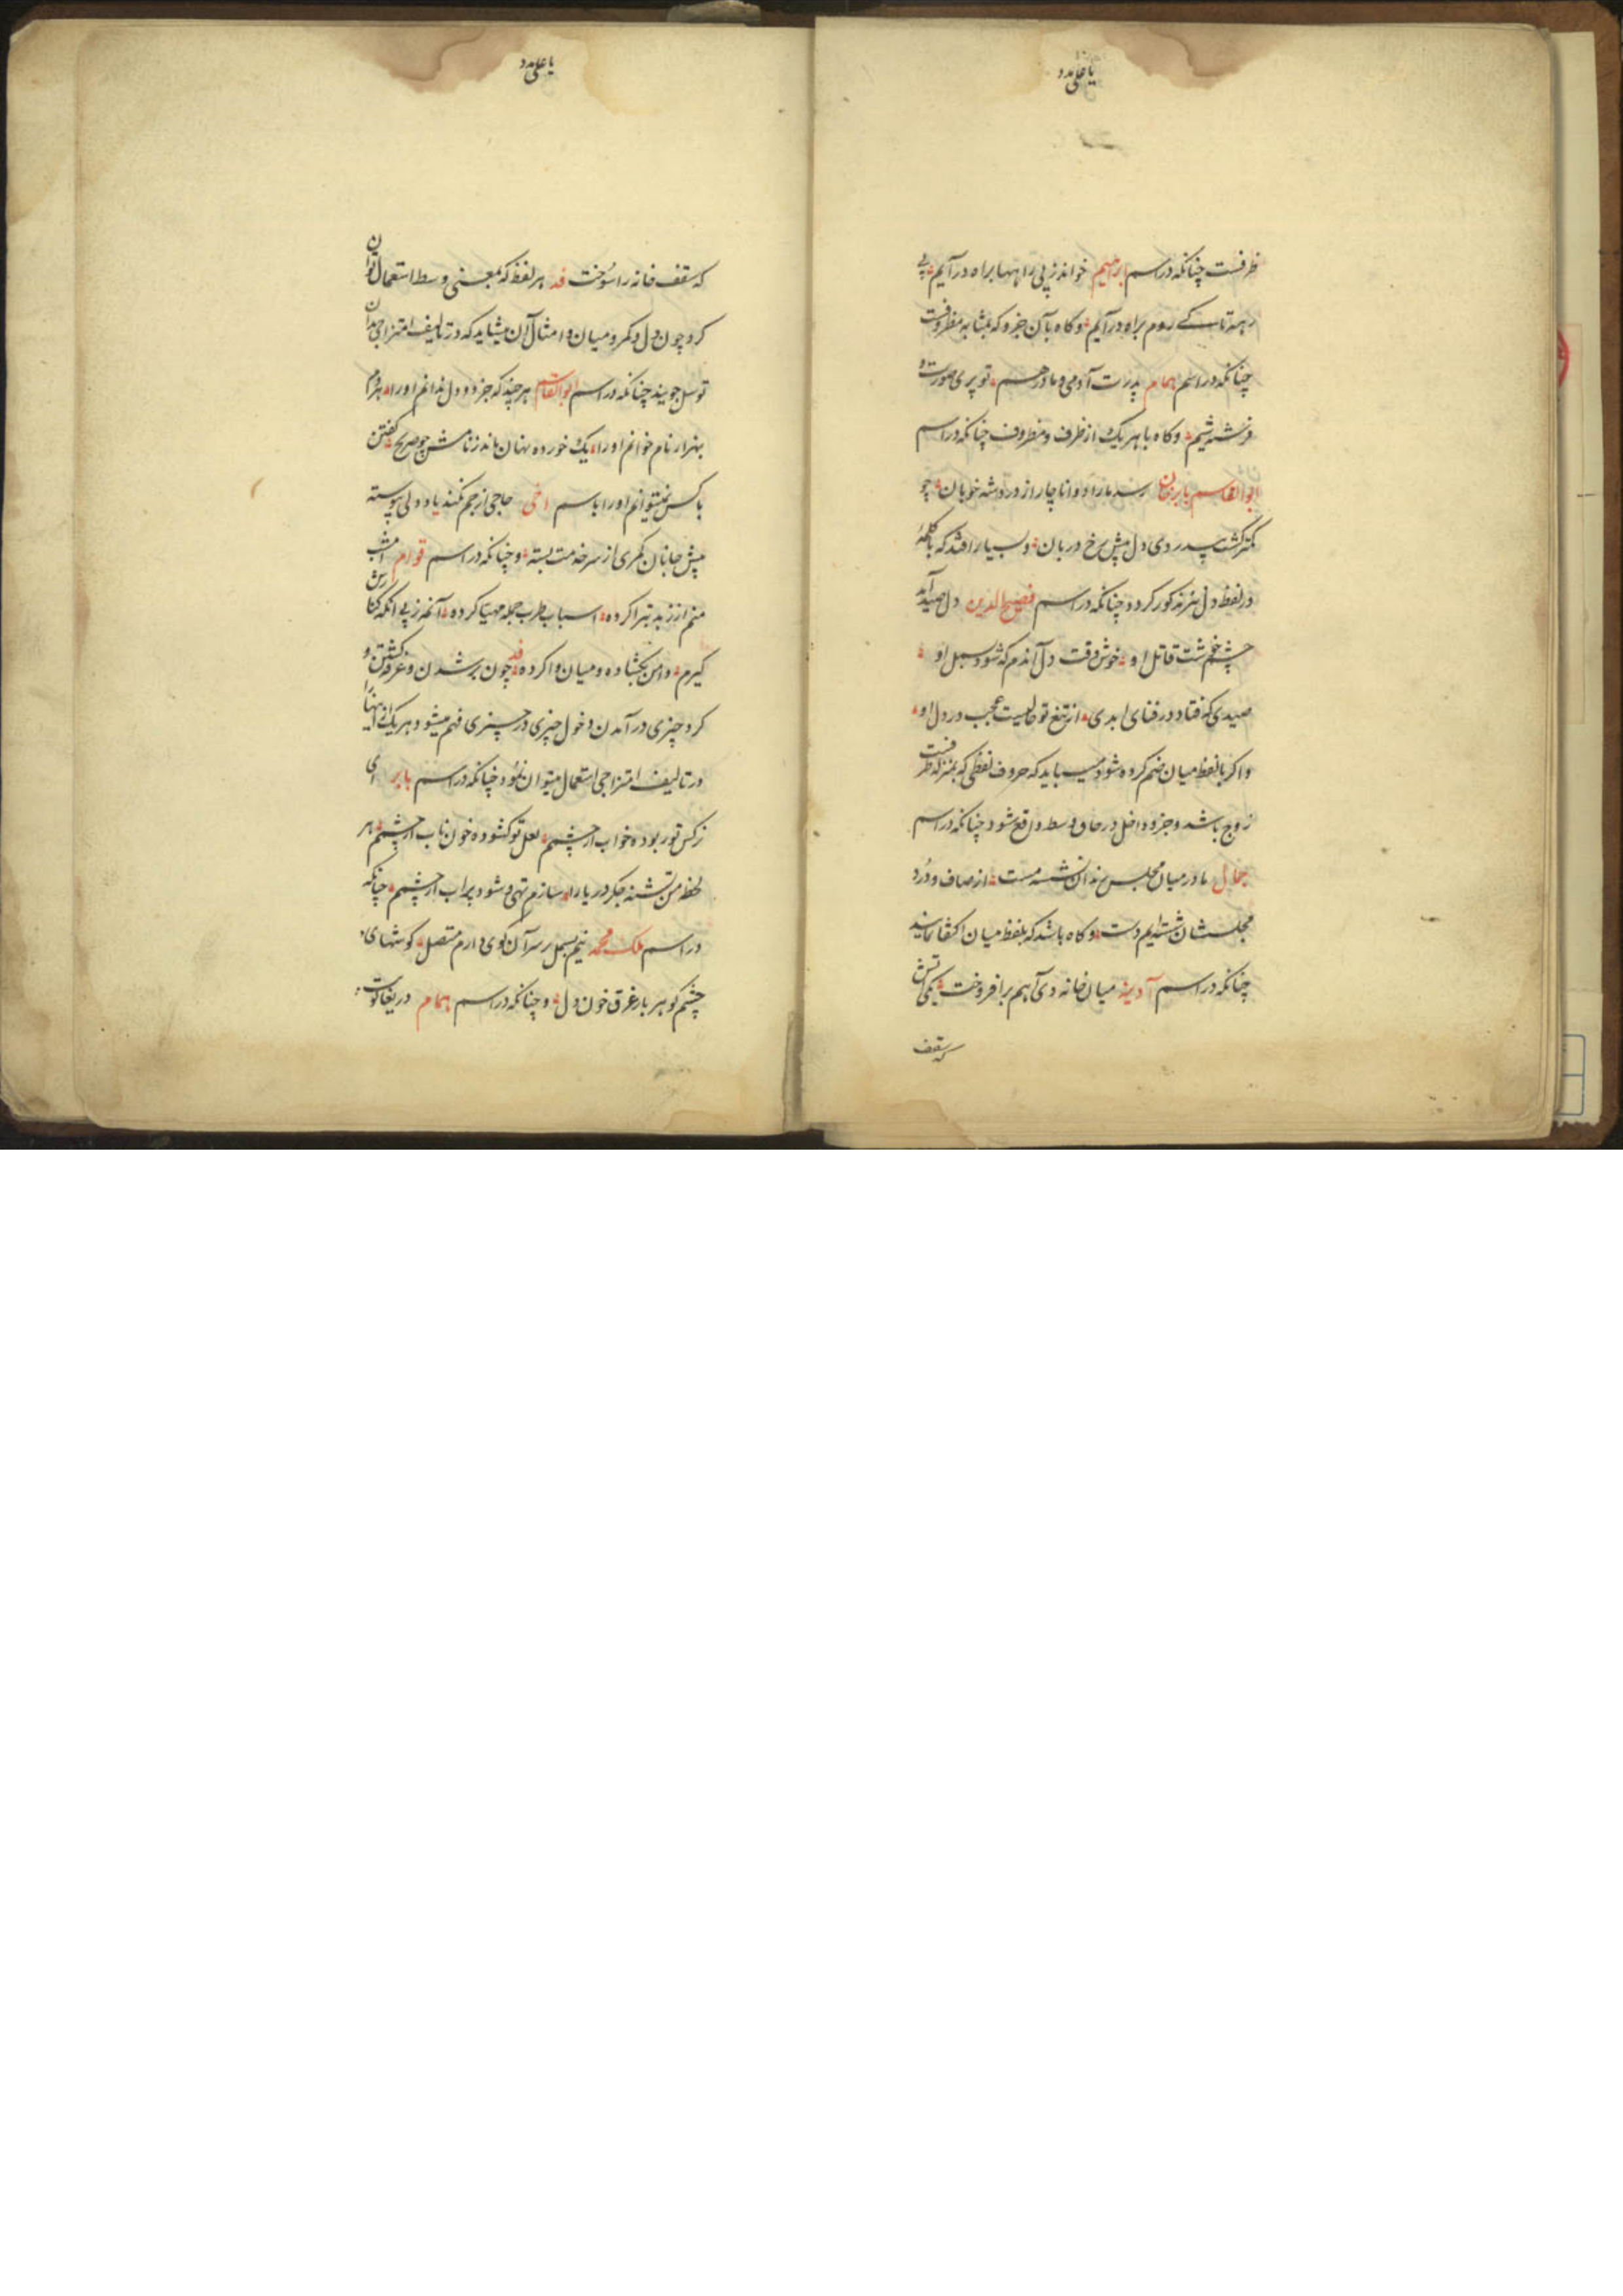 یا علی مدد
ظرفست چنانکه در اسم ابراهیم خواند ز پی راهبها براه در آیم پی
رسته تا کے روم براه در آیم و کاه بآن جزو که بمثابه مظروفست
چنانکه در اسم همام پدرت آدمی و مادر هم تو پری صورت و
فرشته شیم و کاه با هر یک از ظرف و مظروف چنانکه در اسم
ابوالقاسم بابرخان رسد مارا دوا ناچار از درد شه خوبان چو
کمتر کشت پدر وی دل پیش رخ دربان و بسیار افتد که با کلمهٔ
در لفظ دل نیز مذکور کردد چنانکه در اسم فصیح الدین دل صید آمد
چشم شت قاتل او خوش وقت دل آندم که شود بسمل او
صیدی که فتاد در فنای ابدی از تیغ تو حالیست عجب در دل او
و اکر با لفظ میان ضم کرده شود میباید که حروف لفظی که بمنزله ظرفست
زوج باشد و جزو داخل در حاق وسط واقع شود چنانکه در اسم
جمال ما در میان مجلس رندان نشسته مست از صاف و درد
مجلسشان شسته ایم دست و کاه باشد که بلفظ میان اکتفا نمایند
چنانکه در اسم آدینه میان خانه دی آهم برافروخت یکی آتش
که سقف
یا علی مدد
که سقف خانه را سوخت قد هر لفظ که بمعنی وسط استعمال توان
کرد چون دل و کمر و میان و امثال آن میشاید که در تالیف امتزاجی بدان
توسل جویند چنانکه در اسم ابوالقاسم هر چند که جز درد دل ندانم اورا هر دم
بهزار نام خوانم اورا یک خورده نهان ماند ز نامش چو صریح کفتن
با کس نمیتوانم اورا باسم اخی حاجی از جم نکند یاد ولی پیوسته
پیش جانان کمری از سر خدمت بسته و چنانکه در اسم قوام امشب
منم از زهد تبرا کرده اسباب طرب جمله مهیا کرده آنهم ز پی آنکه کنارش
کیرم دامن بکشاده و میان وا کرده قد چون بر شدن و غرق کشتن و
کرد چیزی در آمدن و دخول چیزی در چیزی فهم میشود هر یک از اینها را
در تالیف امتزاجی استعمال میتوان نمود چنانکه در اسم بابر ای
نرکس تو ربوده خواب از چشم لعل تو کشوده خون ناب از چشم هر
لحظه من تشنه جکر دریا را سازم تهی و شود پر آب از چشم چنانکه
در اسم ملک محمد نیم بسمل بر سر آن کوی دارم متصل کوشهای
چشم کوهر بار غرق خون دل و چنانکه در اسم همام دریغا کوت